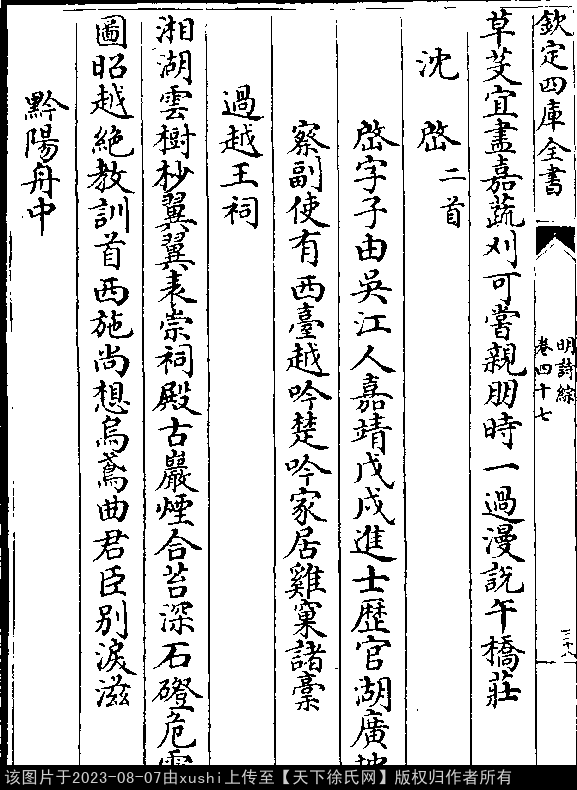 欽定四庫全書
明詩綜
卷四十七
三十八
草芟宜盡嘉蔬刈可嘗親朋時一過漫說午橋莊
沈啓二首
啓字子由吳江人嘉靖戊戌進士歷官湖廣按
察副使有西臺越吟楚吟家居雞窠諸稾
過越王祠
湘湖雲樹杪翼翼表崇祠殿古巖煙合苔深石磴危
圖昭越絶教訓首西施尚想烏鳶曲君臣別淚滋
黔陽舟中
该图片于2023-08-07由xushi上传至【天下徐氏网】版权归作者所有